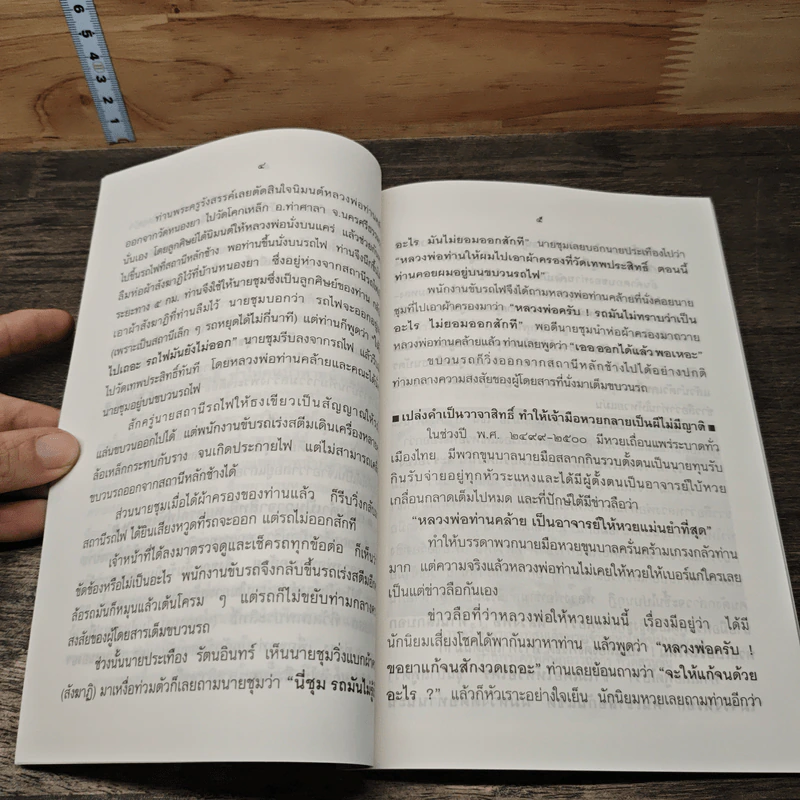 6
5
4
3
2
1
๔
ท่านพระครูรังสรรค์เลยตัดสินใจนิมนต์หลวงพ่อท่าน
ออกจากวัดหนองยา ไปวัดโคกเหล็ก อ.ท่าศาลา จ.นครศรีธรรมราช
นั่นเอง โดยลูกศิษย์ได้นิมนต์ให้หลวงพ่อนั่งบนแคร่ แล้วช่วยกัน
ไปขึ้นรถไฟที่สถานีหลักช้าง พอท่านขึ้นนั่งบนรถไฟ ท่านจึงนึกขึ้น
ลืมห่อผ้าสังฆาฏิไว้ที่บ้านหนองยา ซึ่งอยู่ห่างจากสถานีรถไฟ
ระยะทาง ๕ กม. ท่านจึงใช้ให้นายชุมซึ่งเป็นลูกศิษย์ของท่าน
เอาผ้าสังฆาฏิที่ท่านลืมไว้ นายชุมบอกว่า รถไฟจะออกอยู่
(เพราะเป็นสถานีเล็ก ๆ รถหยุดได้ไม่กี่นาที) แต่ท่านก็พูดว่า
ไปเถอะ รถไฟมันยังไม่ออก” นายชุมรีบลงจากรถไฟ แล้ววิ่ง
ไปวัดเทพประสิทธิ์ทันที โดยหลวงพ่อท่านคล้ายและคณะได้
นายชุมอยู่บนขบวนรถไฟ
สักครู่นายสถานีรถไฟให้ธงเขียวเป็นสัญญาณให้
แล่นขบวนออกไปได้ แต่พนักงานขับรถเร่งสตีมเดินเครื่องหลาย
ล้อเหล็กกระทบกับราง จนเกิดประกายไฟ แต่ไม่สามารถ
ขบวนรถออกจากสถานีหลักช้างได้
ส่วนนายชุมเมื่อได้ผ้าครองของท่านแล้ว ก็รีบวิ่งกลับ
สถานีรถไฟ ได้ยินเสียงหวูดที่รถจะออก แต่รถไม่ออกสักที
เจ้าหน้าที่ได้ลงมาตรวจดูและเช็ครถทุกข้อต่อ ก็เห็นว่า
ขัดข้องหรือไม่เป็นอะไร พนักงานขับรถจึงกลับขึ้นรถเร่งสตีมอีก
ล้อรถมันก็หมุนแล้วเต้นโครม ๆ แต่รถก็ไม่ขยับท่ามกลาง
สงสัยของผู้โดยสารเต็มขบวนรถ
ช่วงนั้นนายประเทือง รัตนอินทร์ เห็นนายชุมวิ่งแบกผ้า
(สังฆาฏิ) มาเหงื่อท่วมตัวก็เลยถามนายชุมว่า “นี่ชุม รถมันไม่
๕
อะไร มันไม่ยอมออกสักที” นายชุมเลยบอกนายประเทืองไปว่า
“หลวงพ่อท่านให้ผมไปเอาผ้าครองที่วัดเทพประสิทธิ์ ตอนนี้
ท่านคอยผมอยู่บนขบวนรถไฟ”
พนักงานขับรถไฟจึงได้ถามหลวงพ่อท่านคล้ายที่นั่งคอยนาย
ชุมที่ไปเอาผ้าครองมาว่า “หลวงพ่อครับ ! รถมันไม่ทราบว่าเป็น
อะไร ไม่ยอมออกสักที” พอดีนายชุมนำห่อผ้าครองมาถวาย
หลวงพ่อท่านคล้ายแล้ว ท่านเลยพูดว่า “เออ ออกได้แล้วพอเหอะ”
ขบวนรถก็วิ่งออกจากสถานีหลักช้างไปได้อย่างปกติ
ท่ามกลางความสงสัยของผู้โดยสารที่นั่งมาเต็มขบวนรถ
■ เปล่งคำเป็นวาจาสิทธิ์ ทำให้เจ้ามือหวยกลายเป็นผีไม่มีญาติ ■
ในช่วงปี พ.ศ. ๒๔๙๙-๒๕๐๐ มีหวยเถื่อนแพร่ระบาดทั่ว
เมืองไทย มีพวกขุนบาลนายมือสลากกินรวบตั้งตนเป็นนายทุนรับ
กินรับจ่ายอยู่ทุกหัวระแหงและได้มีผู้ตั้งตนเป็นอาจารย์ใบ้หวย
เกลื่อนกลาดเต็มไปหมด และที่ปักษ์ใต้มีข่าวลือว่า
“หลวงพ่อท่านคล้าย เป็นอาจารย์ให้หวยแม่นยำที่สุด”
ทำให้บรรดาพวกนายมือหวยขุนบาลครั่นคร้ามเกรงกลัวท่าน
มาก แต่ความจริงแล้วหลวงพ่อท่านไม่เคยให้หวยให้เบอร์แก่ใครเลย
เป็นแต่ข่าวลือกันเอง
ข่าวลือที่ว่าหลวงพ่อให้หวยแม่นนี้ เรื่องมีอยู่ว่า ได้มี
นักนิยมเสี่ยงโชคได้พากันมาหาท่าน แล้วพูดว่า “หลวงพ่อครับ !
ขอยาแก้จนสักงวดเถอะ” ท่านเลยย้อนถามว่า “จะให้แก้จนด้วย
อะไร ?” แล้วก็หัวเราะอย่างใจเย็น นักนิยมหวยเลยถามท่านอีกว่า